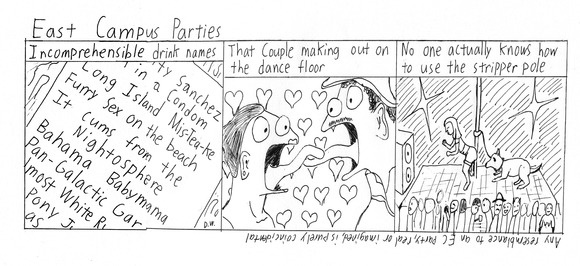 East Campus Parties
Incomprehensible drink names
ty Sanchez
in a Condom
Long Island Mis-tea-ke
Furry Sex on the beach
It cums from the
Nightosphere
Bahama Babymama
Pan-Galactic Gar
most White Ru
Pony J
as
D.W.
That Couple making out on
the dance floor
No one actually knows how
to use the stripper pole
Any resemblance to an EC party, real or imagined, is purely coincidental